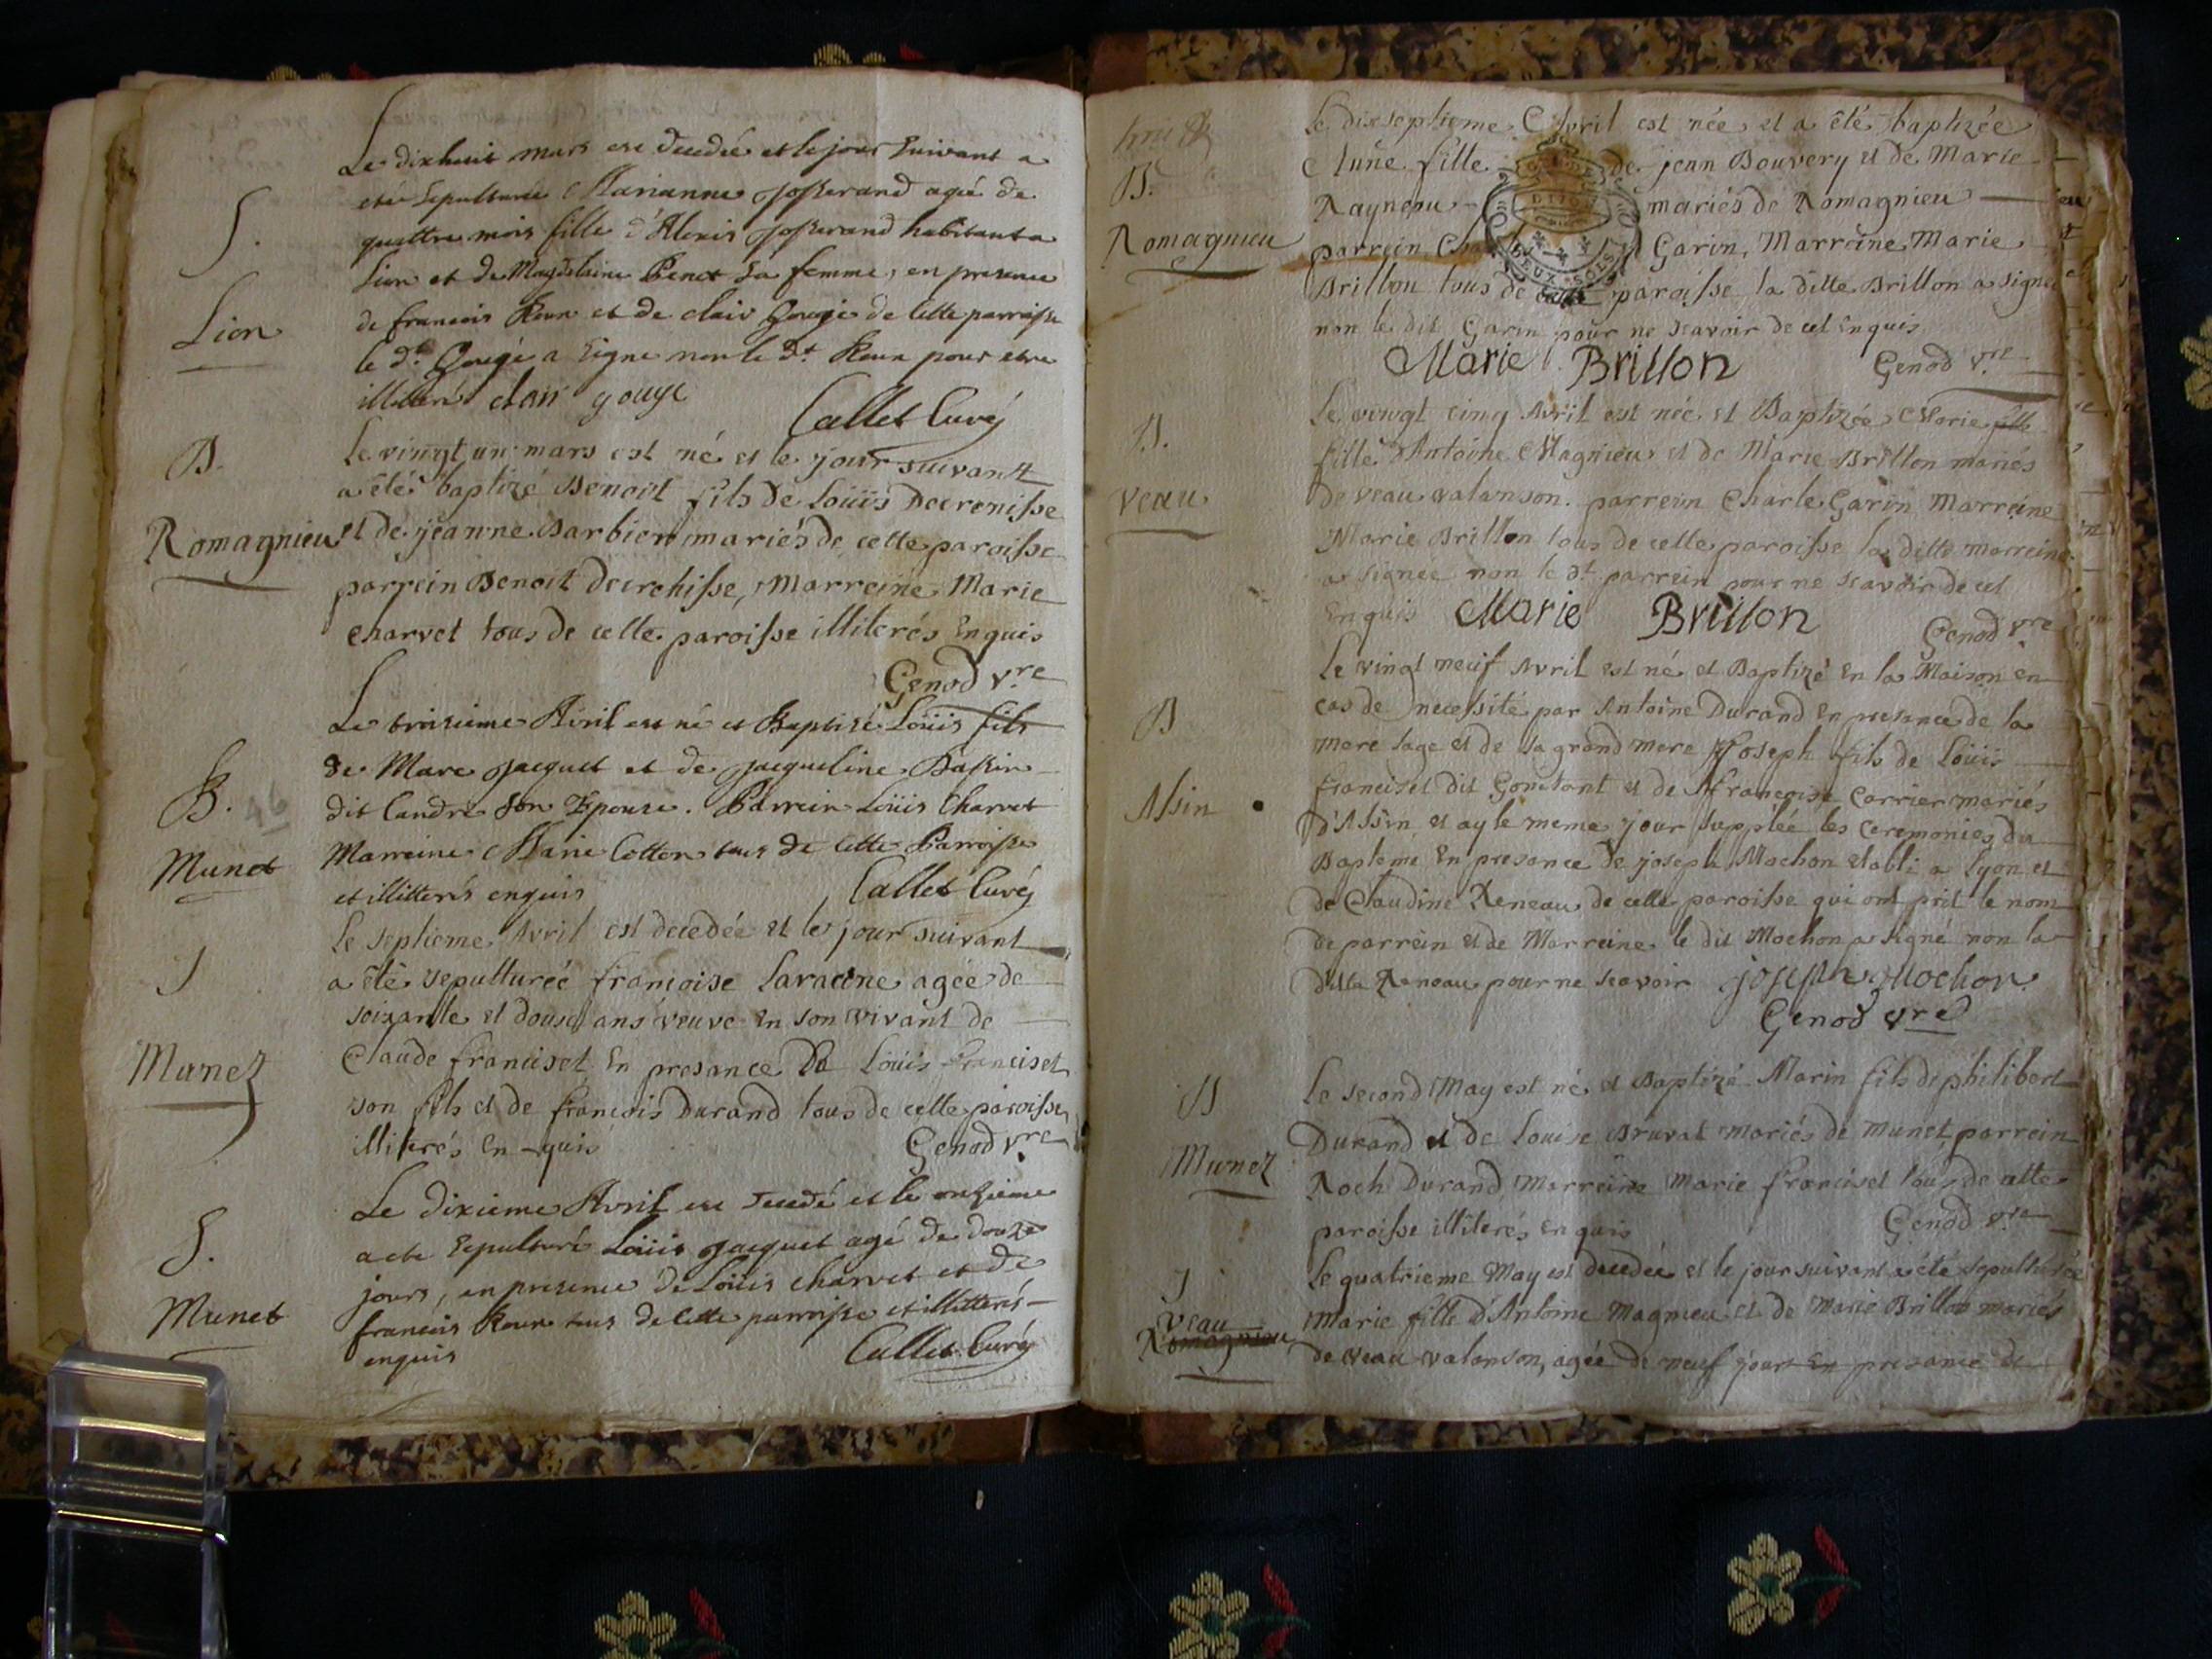 S.
Lion
Le dixhuit mars est decedée et le jour suivant a
eté sepulturée Marianne Josserand agée de
quattre mois fille d'Alexis Josserand habitant a
Lion et de Magdelaine Penet sa femme, en presence
de francois Roux et de clair Gouge de cette parroisse
le dt Gougé a signé non le dt Roux pour etre
illitteré clair gouge
Callet Curé
B.
Romagnieu
le vingt un mars est né et le jour suivant
a été baptizé Benoit fils de Loüis Decrenisse
et de jeanne Barbier mariés de cette paroisse
parrein Benoit decrenisse, Marreine Marie
charvet tous de cette paroisse illiterés Enquis
Genod vre
B. 46
Munet
Le troisieme Avril est né et Baptisé Loüis fils
de Marc Jacquet et de Jacqueline
dit Candre son Epouse. Parrein Loüis Charvet
Marreine Marie Cotton tous de cette Parroisse
et illitterés enquis
Callet Curé
S
Munet
le septieme Avril est decedée et le jour suivant
a été sepulturée francoise Laracine agée de
soixante et douse ans veuve En son vivant de
Claude franciset En presance De Loüis franciset
son fils et de francois Durand tous de cette paroisse
illiterés En-quis
Genod vre
S.
Munet
Le dixieme Avril est decedé et le onzieme
a eté sepulturé Loüis Jacquet agé de douze
jours, en presence de Loüis charvet et de
francois Roux tous de cette parroisse et illitterés
enquis
Callet Curé
B.
Romagnieu
le dixseptieme Avril est née et a été baptizée
fille de jean Bouvery et de Marie
Rayneau mariés de Romagnieu
parrein Garin, Marreine Marie
Brillon tous de cette paroisse la ditte Brillon a signé
non le dit Garin pour ne scavoir de cet Enquis
DEUX SOLS
Marie Brillon
Genod vre
B.
veau
le vingt cinq Avril est née et Baptizée Marie fille
fille d'Antoine Magnieu et de Marie Brillon mariés
de veau valanson. parrein Charle Garin Marreine
Marie Brillon tous de cette paroisse la ditte marreine
a signée non le dt parrein pour ne scavoir de cet
Enquis Marie Brillon
Genod vre
B
Assin
le vingt neuf Avril est né et Baptizé En la Maison en
cas de necessité par Antoine Durand En presance de la
mere sage et de sa grand mere Joseph fils de Loüis
franciset dit Constant et de francoise Carrier mariés
d'Assin et ay le meme jour supplée les ceremonies du
Bapteme En presance de joseph Mochon etabli a Lyon et
de Claudine Reneau de cette paroisse qui ont prit le nom
de parrein et de Marreine le dit Mochon a signé non la
ditte Reneau pour ne scavoir joseph Mochon
Genod vre
B
Munet
le second May est né et Baptizé Marin fils de philibert
Durand et de Louise Bruvat mariés de Munet, parrein
Roch Durand, Marreine Marie franciset tous de cette
paroisse illiterés Enquis
Genod vre
S
veau
Romagnieu
le quatrieme May est decedée et le jour suivant a été sepulturée
Marie fille d'Antoine Magnieu et de Marie Brillon mariés
de veau valanson, agée de neuf jours En presance de